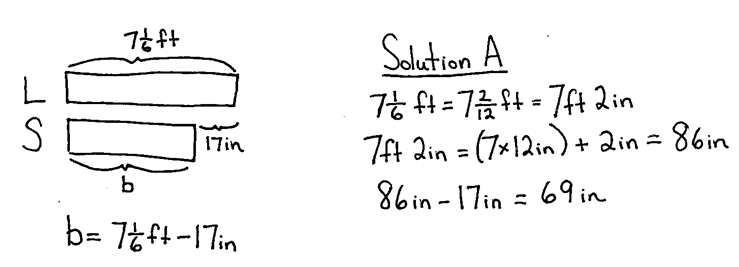 7 1/6 ft
L
S
17in
b
b= 7 1/6 ft - 17in
Solution A
7 1/6 ft = 7 2/12 ft = 7ft 2in
7ft 2in = (7×12in) + 2in = 86in
86in - 17in = 69in